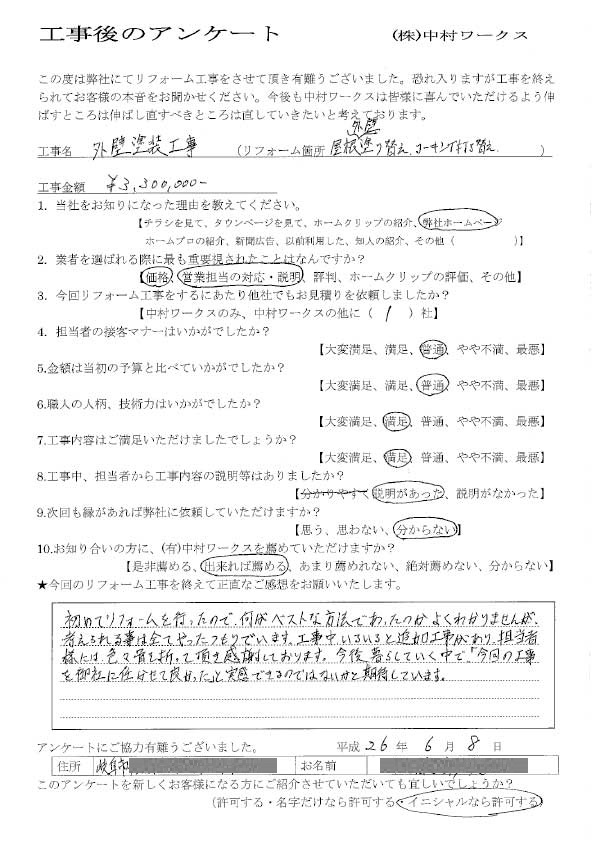 工事後のアンケート　(株)中村ワークス
この度は弊社にてリフォーム工事をさせて頂き有難うございました。恐れ入りますが工事を終え
られてお客様の本音をお聞かせください。今後も中村ワークスは皆様に喜んでいただけるよう伸
ばすところは伸ばし直すべきところは直していきたいと考えております。
外壁
工事名　外壁塗装工事　(リフォーム箇所 屋根塗り替え、コーキング打ち替え　)
工事金額　¥3,300,000-
1. 当社をお知りになった理由を教えてください。
【チラシを見て、タウンページを見て、ホームクリップの紹介、弊社ホームページ
ホームプロの紹介、新聞広告、以前利用した、知人の紹介、その他（　　　）】
2. 業者を選ばれる際に最も重要視されたことはなんですか？
【価格、営業担当の対応・説明、評判、ホームクリップの評価、その他】
3. 今回リフォーム工事をするにあたり他社でもお見積りを依頼しましたか？
【中村ワークスのみ、中村ワークスの他に（ 1 ）社】
4. 担当者の接客マナーはいかがでしたか？
【大変満足、満足、普通、やや不満、最悪】
5.金額は当初の予算と比べていかがでしたか？
【大変満足、満足、普通、やや不満、最悪】
6.職人の人柄、技術力はいかがでしたか？
【大変満足、満足、普通、やや不満、最悪】
7.工事内容はご満足いただけましたでしょうか？
【大変満足、満足、普通、やや不満、最悪】
8.工事中、担当者から工事内容の説明等はありましたか？
【分かりやすく説明があった、説明がなかった】
9.次回も縁があれば弊社に依頼していただけますか？
【思う、思わない、分からない】
10.お知り合いの方に、(有)中村ワークスを薦めていただけますか？
【是非薦める、出来れば薦める、あまり薦めれない、絶対薦めない、分からない】
★今回のリフォーム工事を終えて正直なご感想をお願いいたします。
初めてリフォームを行ったので、何がベストな方法であったのかよくわかりませんが、
考えられる事は全てやったつもりでいます。工事中いろいろと追加工事があり、担当者
様には色々骨を折って頂き感謝しております。今後、暮らしていく中で「今回の工事
を御社に任せて良かった」と実感できるのではないかと期待しています。
アンケートにご協力有難うございました。　平成 26 年 6 月 8 日
住所　岐阜市　お名前
このアンケートを新しくお客様になる方にご紹介させていただいても宜しいでしょうか？
（許可する・名字だけなら許可する・イニシャルなら許可する）